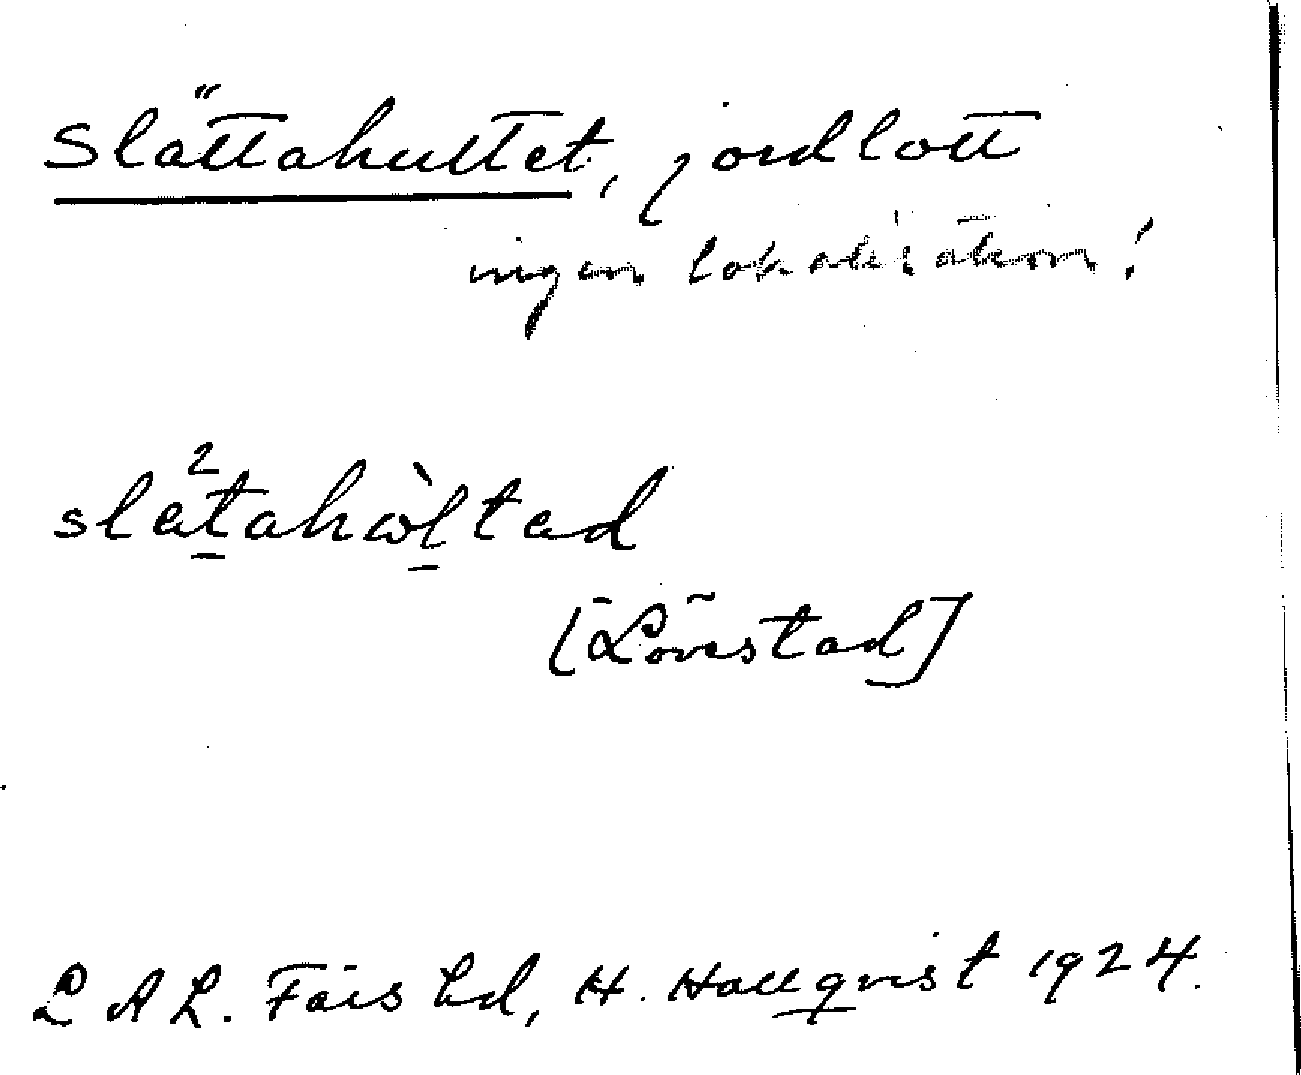 Slättahultet, jordlott
ingen lokalisation!
slätahòltad
[Lövestad]
L A L. Färs hd, H. Hallqvist 1924.